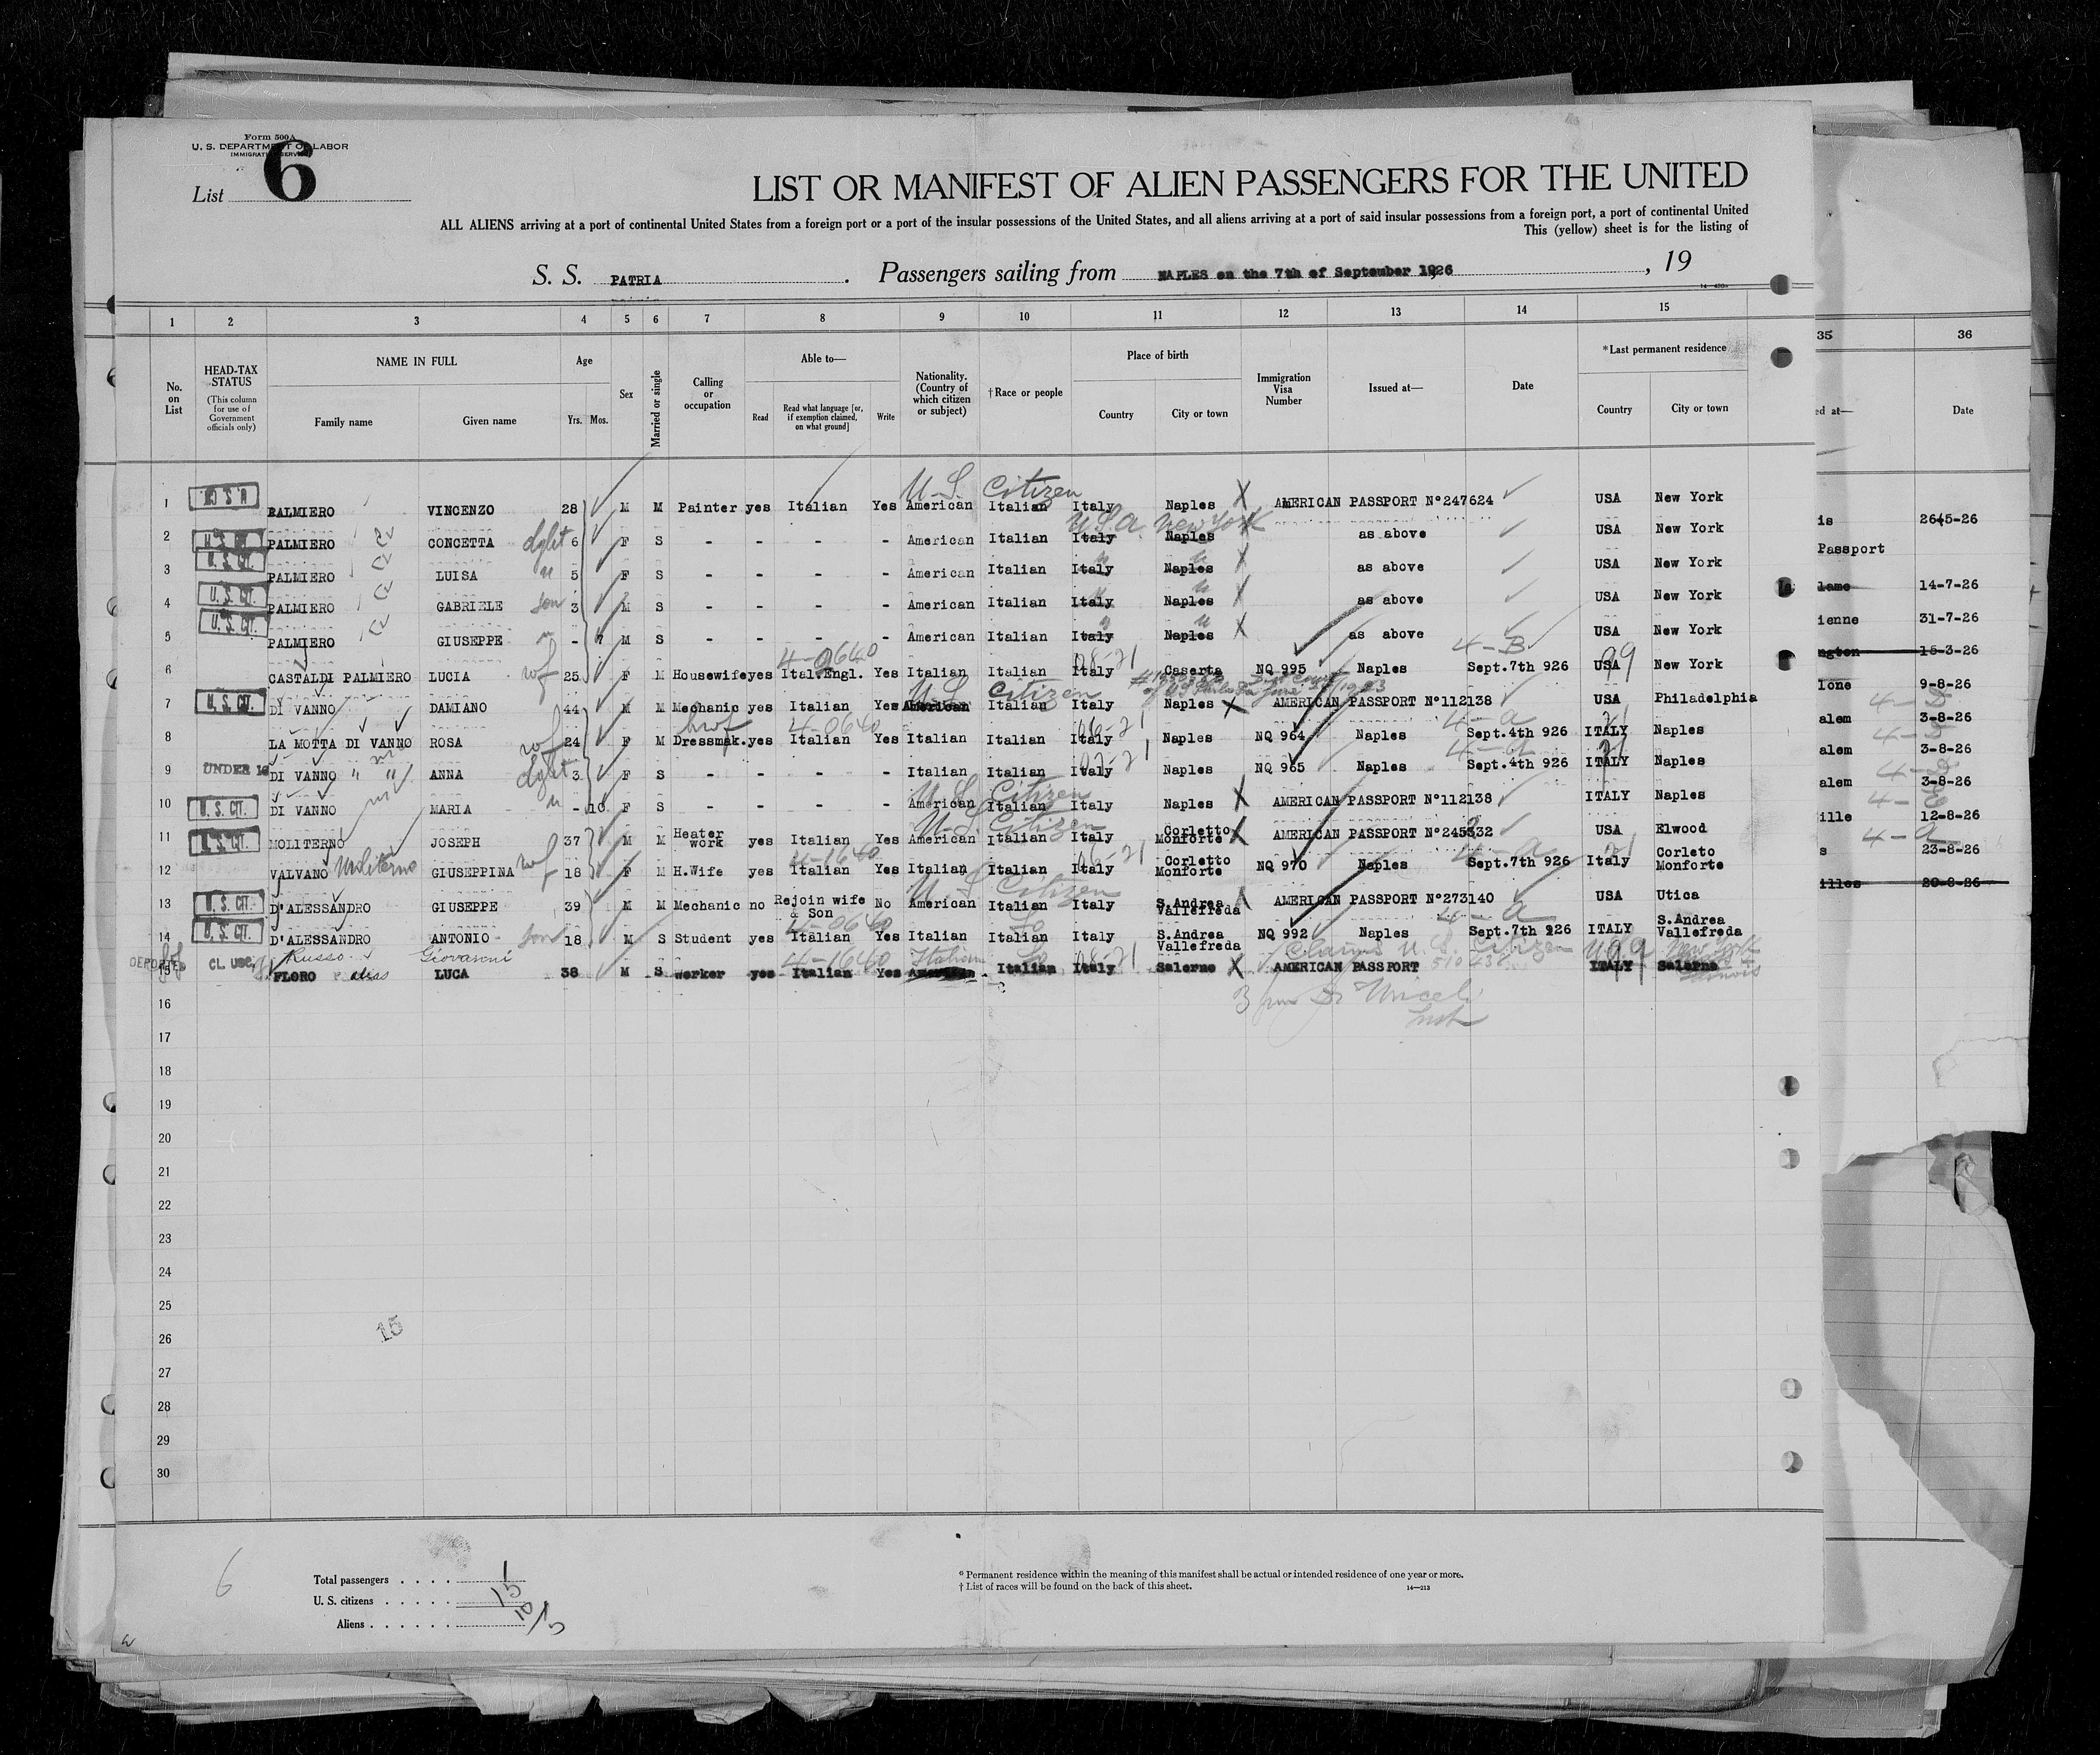 Form 500A
U. S. DEPARTMENT OF LABOR
IMMIGRATION SERVICE
List 6
LIST OR MANIFEST OF ALIEN PASSENGERS FOR THE UNITED
ALL ALIENS arriving at a port of continental United States from a foreign port or a port of the insular possessions of the United States, and all aliens arriving at a port of said insular possessions from a foreign port, a port of continental United
This (yellow) sheet is for the listing of
S. S. PATRIA . Passengers sailing from NAPLES on the 7th of September 1926 , 19
1 2 3 4 5 6 7 8 9 10 11 12 13 14 15 35 36
No. on List
HEAD-TAX STATUS (This column for use of Government officials only)
NAME IN FULL Family name Given name
Age Yrs. Mos.
Sex
Married or single
Calling or occupation
Able to— Read Read what language [or, if exemption claimed, on what ground] Write
Nationality. (Country of which citizen or subject)
†Race or people
Place of birth Country City or town
Immigration Visa Number
Issued at—
Date
*Last permanent residence Country City or town
ed at— Date
U. S. Citizen
1 PALMIERO VINCENZO 28 M M Painter yes Italian Yes American Italian Italy Naples X AMERICAN PASSPORT N°247624 USA New York
U.S.A. New York
2 U. S. CIT. PALMIERO CONCETTA dght 6 F S - - - - American Italian Italy Naples as above USA New York
3 U. S. CIT. PALMIERO LUISA " 5 F S - - - - American Italian Italy Naples X as above USA New York
4 U. S. CIT. PALMIERO GABRIELE son 3 M S - - - - American Italian Italy Naples X as above USA New York
5 U. S. CIT. PALMIERO GIUSEPPE " - 7 M S - - - - American Italian Italy Naples X as above USA New York
4-0640 08-21 4-B
6 CASTALDI PALMIERO LUCIA wf 25 F M Housewife yes Ital.Engl. Yes Italian Italian Italy Caserta NQ 995 Naples Sept.7th 926 USA 99 New York
U.S. Citizen
7 U. S. CIT. DI VANNO DAMIANO 44 M M Mechanic yes Italian Yes American Italian Italy Naples X AMERICAN PASSPORT N°112138 USA Philadelphia
hwf 4-0640 06-21 4-a
8 LA MOTTA DI VANNO ROSA wf 24 F M Dressmak. yes Italian Yes Italian Italian Italy Naples NQ 964 Naples Sept.4th 926 ITALY Naples
9 UNDER 16 DI VANNO " " ANNA dght 3 F S - - - - Italian Italian Italy Naples NQ 965 Naples Sept.4th 926 ITALY Naples
U.S. Citizen
10 U. S. CIT. DI VANNO MARIA " - 10 F S - - - - American Italian Italy Naples X AMERICAN PASSPORT N°112138 ITALY Naples
U.S. Citizen
11 U. S. CIT. MOLITERNO JOSEPH 37 M M Heater work yes Italian Yes American Italian Italy Corletto Monforte X AMERICAN PASSPORT N°245332 USA Elwood
4-1640 06-21 4-a
12 VALVANO Moliterno GIUSEPPINA wf 18 F M H.Wife yes Italian Yes Italian Italian Italy Corletto Monforte NQ 970 Naples Sept.7th 926 Italy Corleto Monforte
U S Citizen
13 U. S. CIT. D'ALESSANDRO GIUSEPPE 39 M M Mechanic no Rejoin wife & Son No American Italian Italy S.Andrea Vallefreda AMERICAN PASSPORT N°273140 USA Utica
4-0640 4-a
14 U. S. CIT. D'ALESSANDRO ANTONIO son 18 M S Student yes Italian Yes Italian Italian Italy S.Andrea Vallefreda NQ 992 Naples Sept.7th 926 ITALY S.Andrea Vallefreda
Russo Giovanni 4-1640 Italian 08-21 Claims U. S. Citizen New York
15 DEPORTED CL USC FLORO alias LUCA 38 M S worker yes Italian Yes American Italian Italy Salerno X AMERICAN PASSPORT ITALY Salerno
16
17
18
19
20
21
22
23
24
25
26
27
28
29
30
15
is 2645-26
Passport
lame 14-7-26
ienne 31-7-26
ngton 15-3-26
Ione 9-8-26
alem 3-8-26
alem 3-8-26
alem 3-8-26
ille 12-8-26
s 23-8-26
illes 20-8-26
6
Total passengers . . . . 15
U. S. citizens . . . . . 10
Aliens . . . . . . 5
* Permanent residence within the meaning of this manifest shall be actual or intended residence of one year or more.
† List of races will be found on the back of this sheet.
14—213